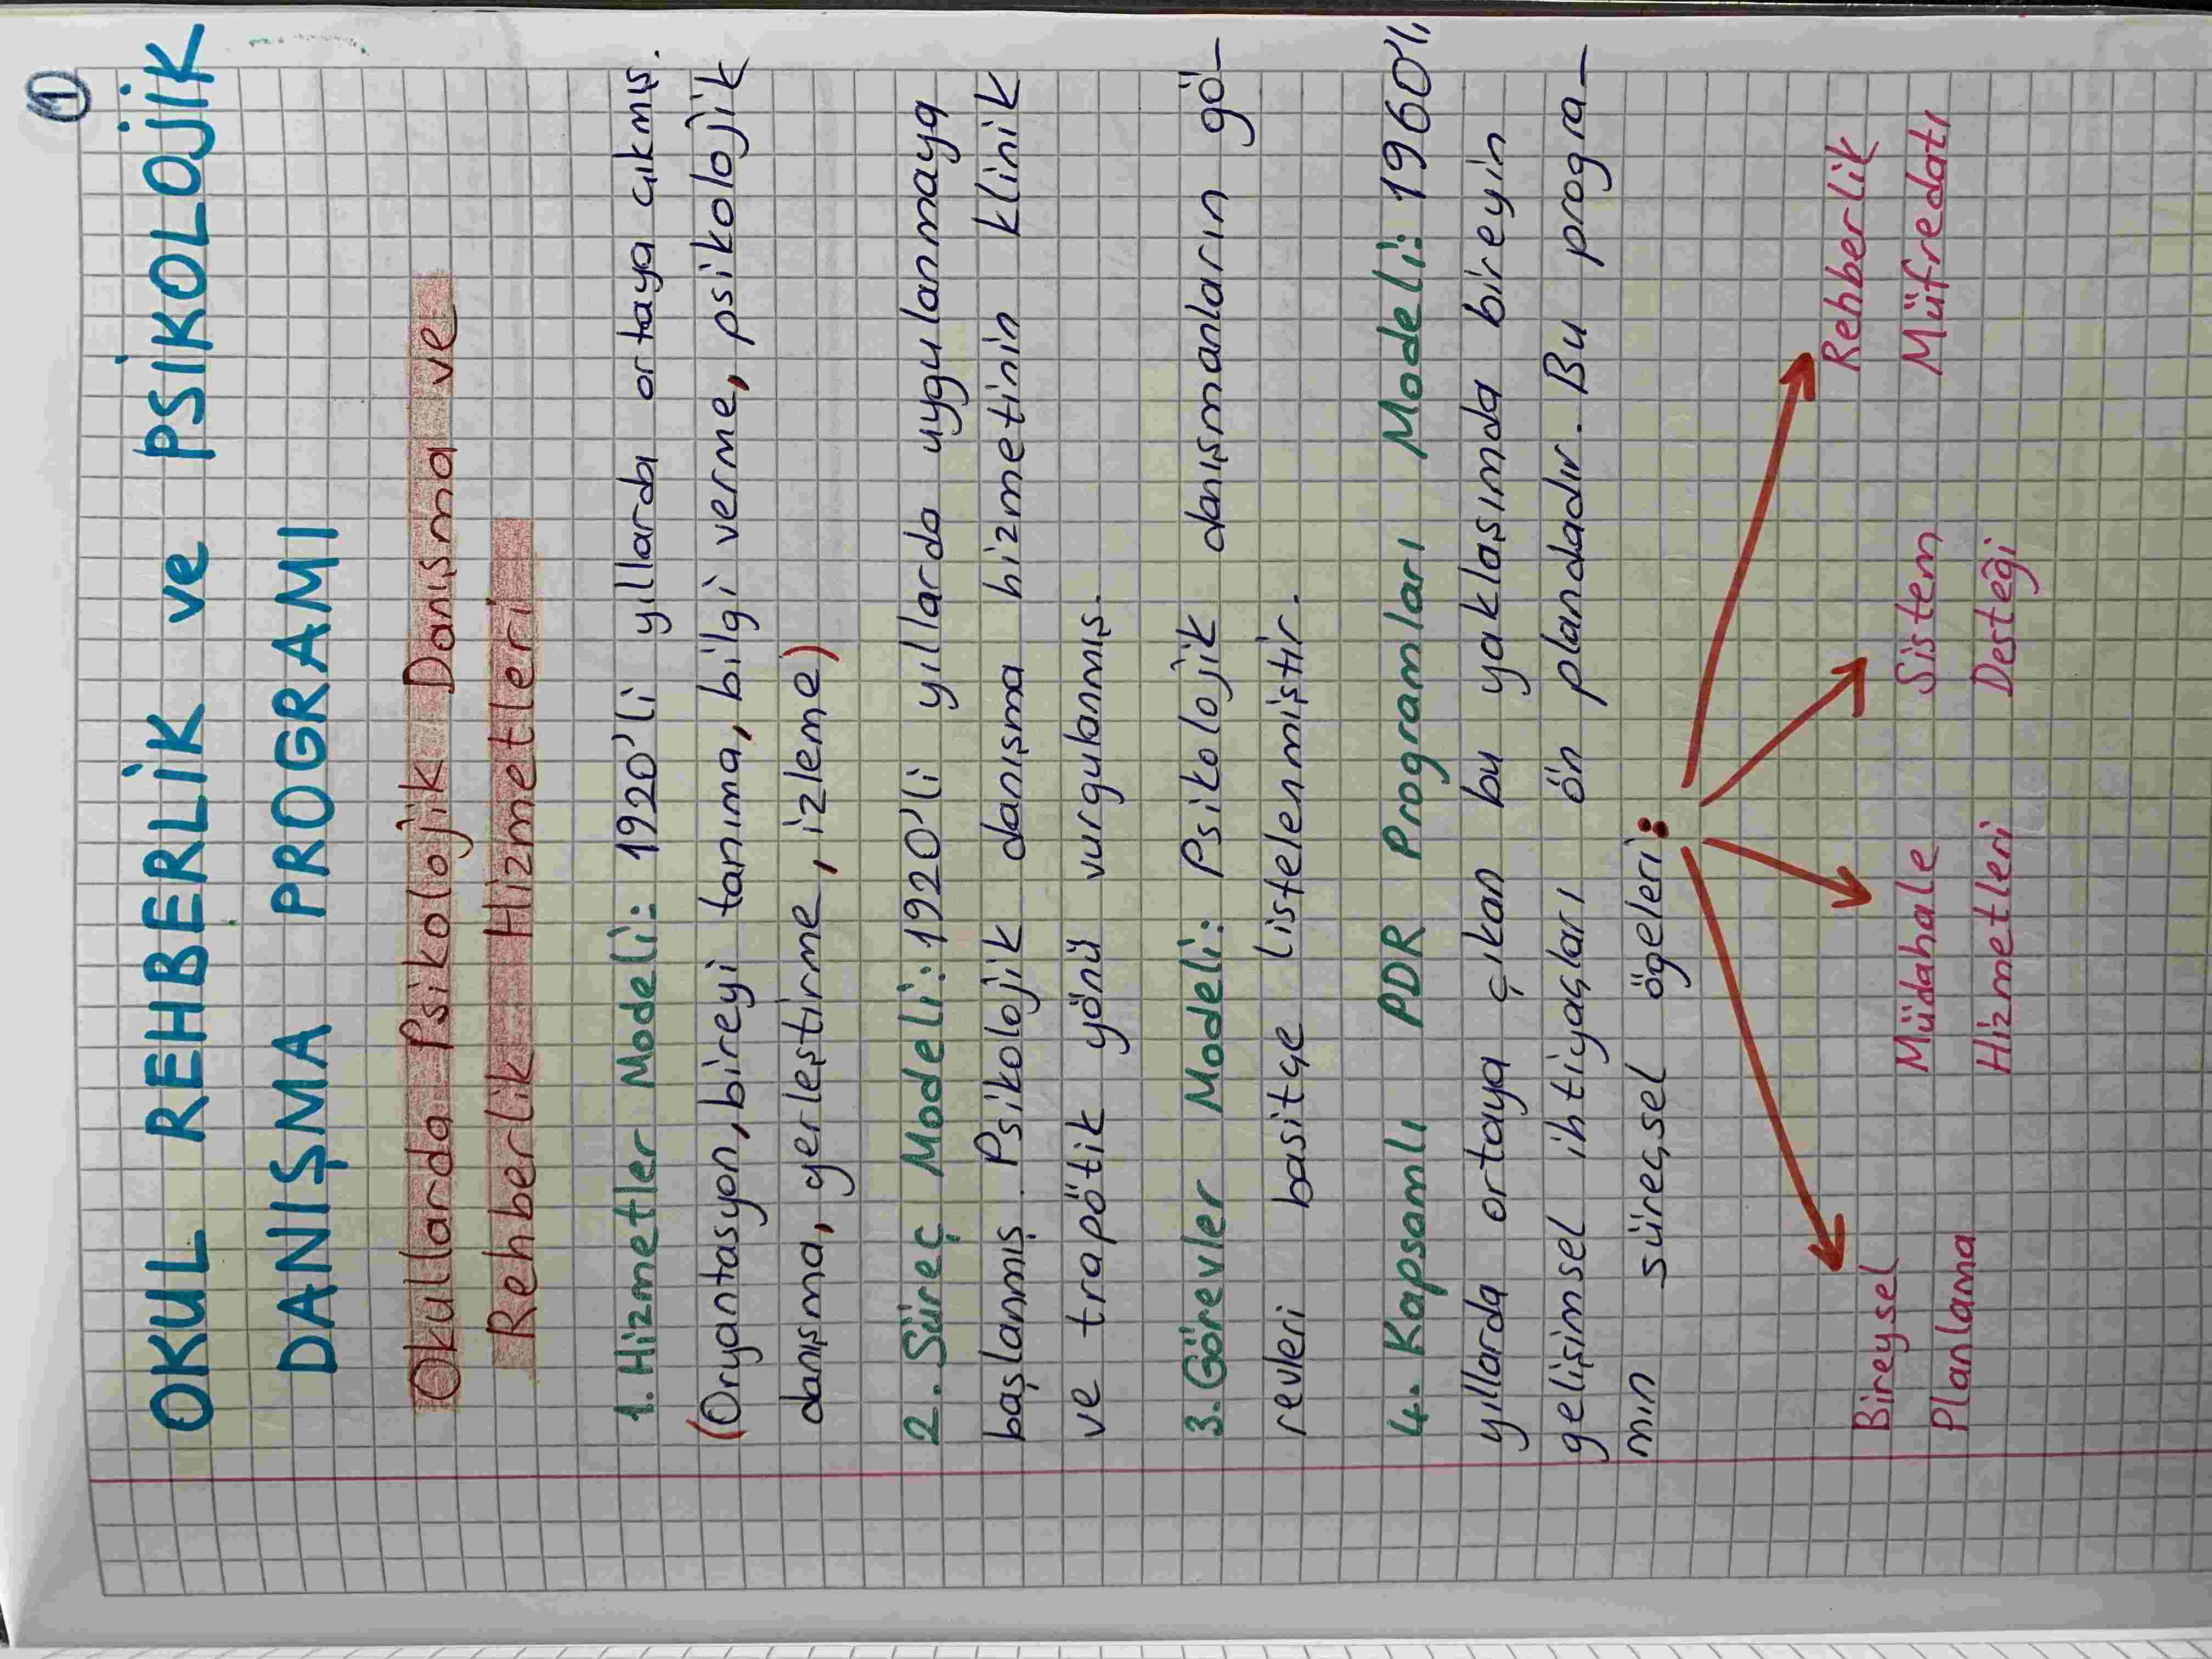 1
OKUL REHBERLİK ve PSİKOLOJİK
DANIŞMA PROGRAMI
Okullarda Psikolojik Danışma ve
Rehberlik Hizmetleri
1. Hizmetler Modeli: 1920'li yıllarda ortaya çıkmış.
(Oryantasyon, bireyi tanıma, bilgi verme, psikolojik
danışma, yerleştirme, izleme)
2. Süreç Modeli: 1920'li yıllarda uygulanmaya
başlanmış. Psikolojik danışma hizmetinin klinik
ve trapötik yönü vurgulanmış.
3. Görevler Modeli: Psikolojik danışmanların gö-
revleri basitçe listelenmiştir.
4. Kapsamlı PDR Programları Modeli: 1960'lı
yıllarda ortaya çıkan bu yaklaşımda bireyin
gelişimsel ihtiyaçları ön plandadır. Bu progra-
mın süreçsel ögeleri:
Bireysel Planlama
Müdahale Hizmetleri
Sistem Desteği
Rehberlik Müfredatı